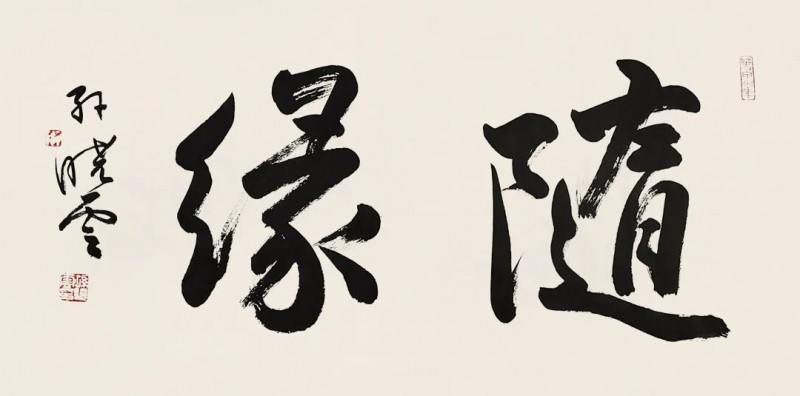 随缘
孙晓云